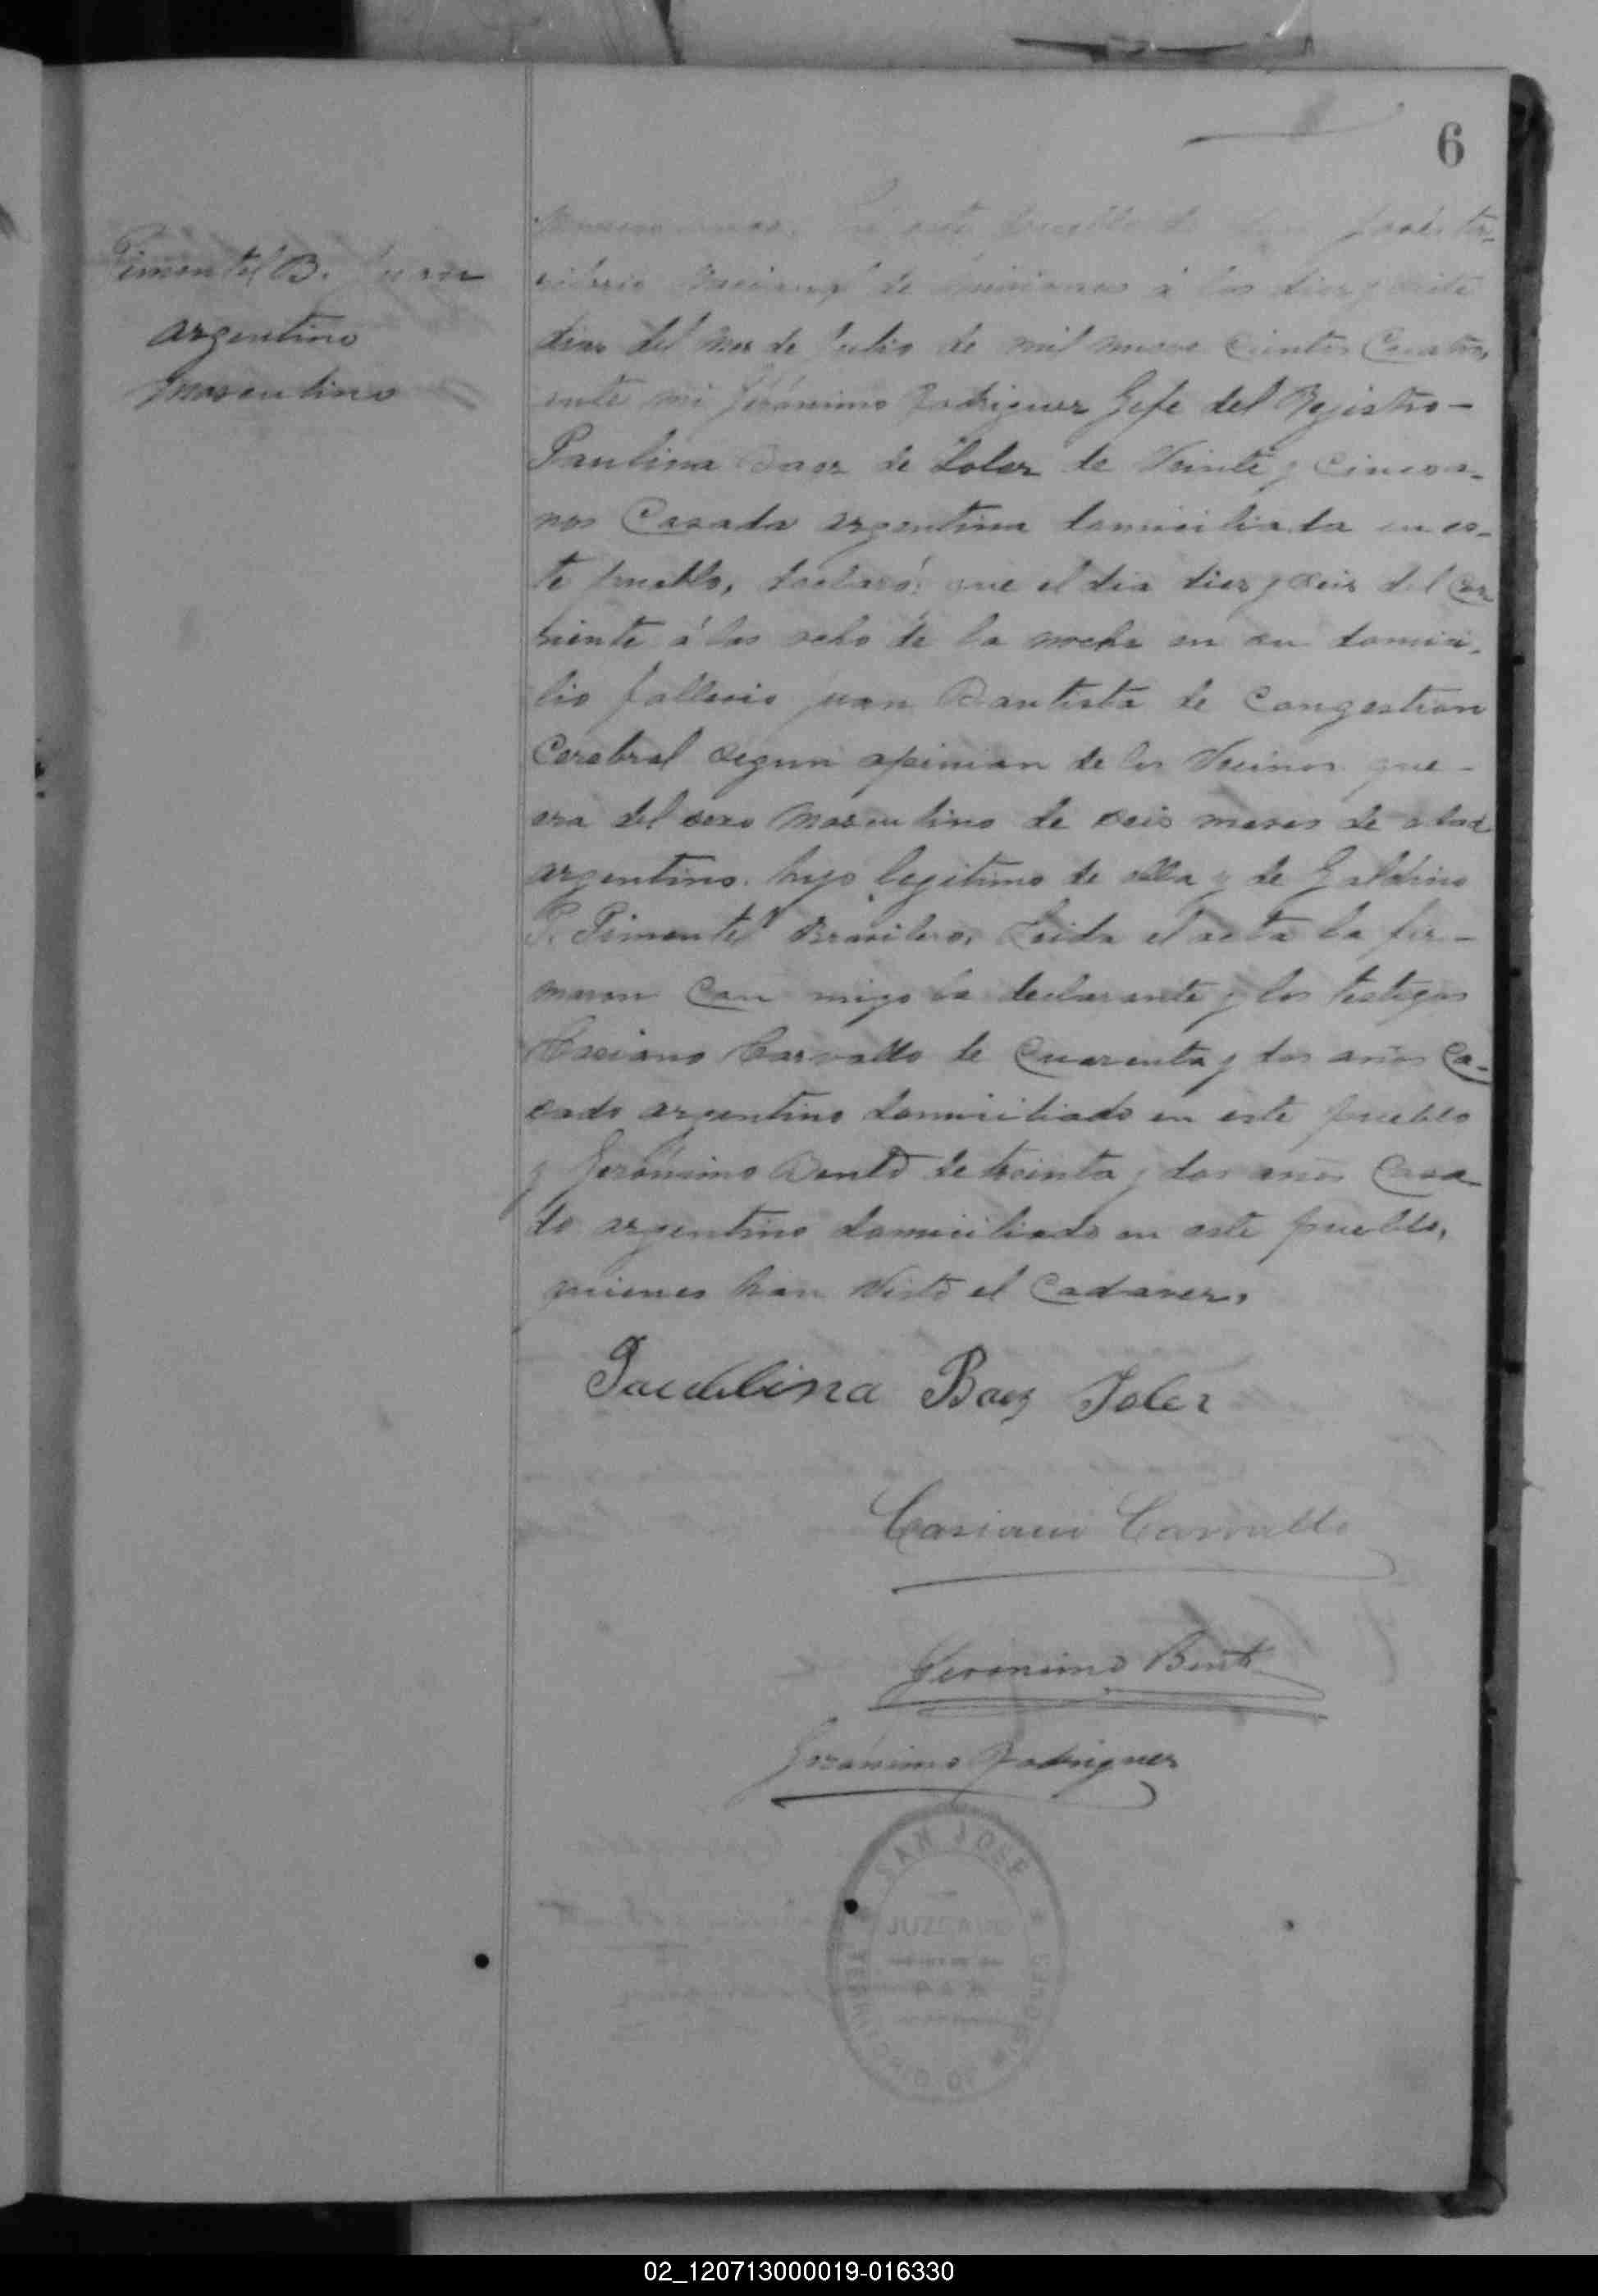 6
Pimentel B. Juan
argentino
masculino
Numero En este pueblo de San José te-
rritorio Nacional de Misiones á los diez y siete
dias del mes de Julio de mil nueve cientos Cuatro,
ante mi Gerónimo Rodriguez Gefe del Rejistro-
Paulina Baez de Soler de Veinte y Cinco a-
ños Casada argentina domiciliada en es-
te pueblo, declaró: que el dia diez y seis del Cor
riente á las ocho de la noche en su domici-
lio fallecio juan Bautista de Congestion
Cerebral segun opinion de los Vecinos que-
era del sexo masculino de seis meses de edad
argentino. hijo legitimo de ella y de Galdino
P. Pimentel Brasilero, Leida el acta la fir-
maron Con migo la declarante y los testigos
Casiano Carvallo de Cuarenta y dos años Ca-
sado argentino domiciliado en este pueblo
y Gerónimo Bento de treinta y dos anos Casa
do argentino domiciliado en este pueblo,
quienes han Visto el Cadaver,
Paulina Baez Soler
Casiano Carvallo
Geronimo Bento
Gerónimo Rodriguez
SAN JOSE
JUZGADO
TERRITORIO
02_120713000019-016330